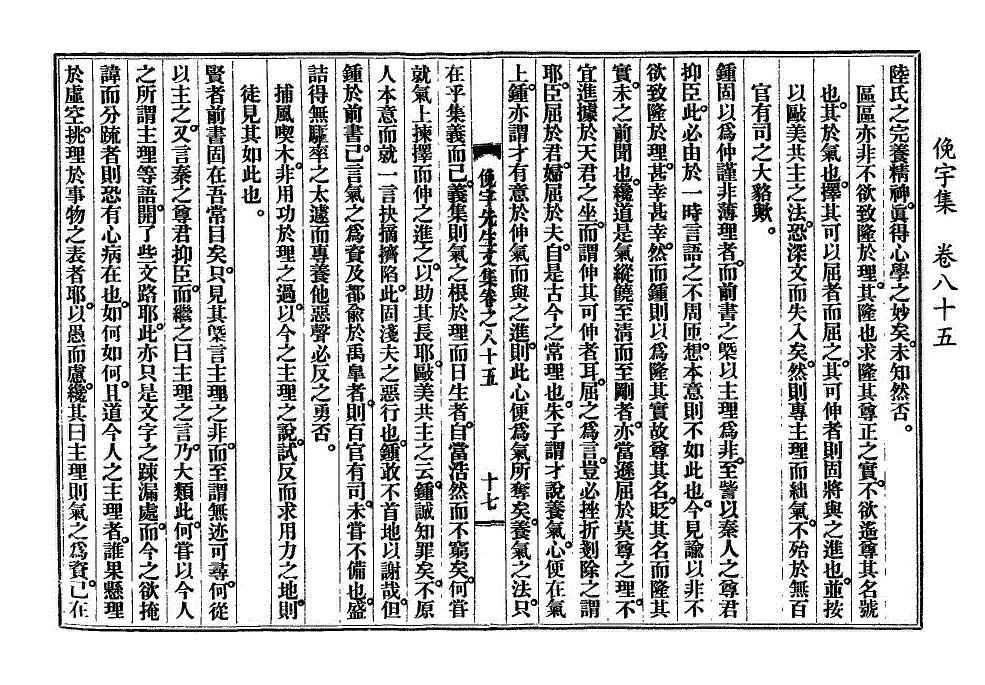 俛宇集　卷八十五
陸氏之完養精神。眞得心學之妙矣。未知然否。
區區亦非不欲致隆於理。其隆也求隆其尊正之實。不欲遙尊其名號
也。其於氣也。擇其可以屈者而屈之。其可伸者則固將與之進也。並按
以敺美共主之法。恐深文而失入矣。然則專主理而絀氣。不殆於無百
官有司之大貉歟。
鍾固以爲仲謹非薄理者。而前書之槩以主理爲非。至譬以秦人之尊君
抑臣。此必由於一時言語之不周匝。想本意則不如此也。今見諭以非不
欲致隆於理。甚幸甚幸。然而鍾則以爲隆其實故尊其名。貶其名而隆其
實。未之前聞也。纔道是氣縱饒至清而至剛者。亦當遜屈於莫尊之理。不
宜進據於天君之坐。而謂伸其可伸者耳。屈之爲言。豈必挫折剗除之謂
耶。臣屈於君。婦屈於夫。自是古今之常理也。朱子謂才說養氣。心便在氣
上。鍾亦謂才有意於伸氣而與之進。則此心便爲氣所奪矣。養氣之法。只
俛宇先生文集卷之八十五　十七
在乎集義而已。義集則氣之根於理而日生者。自當浩然而不窮矣。何甞
就氣上揀擇而伸之進之。以助其長耶。敺美共主之云。鍾誠知罪矣。不原
人本意而就一言抉摘擠陷。此固淺夫之惡行也。鍾敢不首地以謝哉。但
鍾於前書。已言氣之爲資及都兪於禹皐者。則百官有司。未甞不備也。盛
詰得無驅率之太遽。而專養他惡聲必反之勇否。
捕風喫木。非用功於理之過。以今之主理之說。試反而求用力之地。則
徒見其如此也。
賢者前書固在吾常目矣。只見其槩言主理之非。而至謂無迹可尋。何從
以主之。又言秦之尊君抑臣。而繼之曰主理之言。乃大類此。何甞以今人
之所謂主理等語。開了些文路耶。此亦只是文字之踈漏處。而今之欲掩
諱而分疏者則恐有心病在也。如何如何。且道今人之主理者。誰果懸理
於虛空。挑理於事物之表者耶。以愚而慮。纔其曰主理則氣之爲資。已在